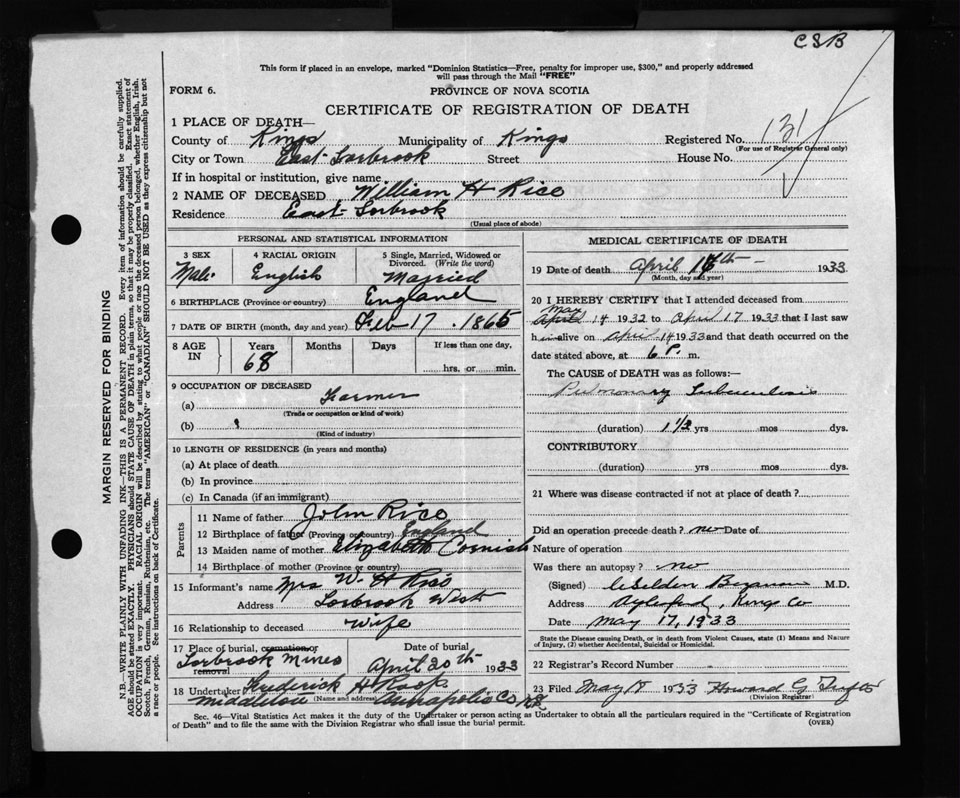 CSB
This form if placed in an envelope, marked "Dominion Statistics—Free, penalty for improper use, $300," and properly addressed
will pass through the Mail "FREE"
FORM 6.
PROVINCE OF NOVA SCOTIA
CERTIFICATE OF REGISTRATION OF DEATH
1 PLACE OF DEATH—
County of Kings Municipality of Kings Registered No. 131
(For use of Registrar General only)
City or Town East Torbrook Street House No.
If in hospital or institution, give name
2 NAME OF DECEASED William H Rice
Residence East Torbrook
(Usual place of abode)
MARGIN RESERVED FOR BINDING
N.B.—WRITE PLAINLY WITH UNFADING INK—THIS IS A PERMANENT RECORD. Every item of information should be carefully supplied.
AGE should be stated EXACTLY. PHYSICIANS should STATE CAUSE OF DEATH in plain terms, so that it may be properly classified. Exact statement of
OCCUPATION is very important. RACIAL ORIGIN will be described by stating to what people or race the deceased person belonged, whether English, Irish,
Scotch, French, German, Russian, Ruthenian, etc. The terms "AMERICAN" or "CANADIAN" SHOULD NOT BE USED as they express citizenship but not
a race or people. See instructions on back of Certificate.
PERSONAL AND STATISTICAL INFORMATION
3 SEX
Male
4 RACIAL ORIGIN
English
5 Single, Married, Widowed or
Divorced. (Write the word)
Married
6 BIRTHPLACE (Province or country) England
7 DATE OF BIRTH (month, day and year) Feb 17 . 1865
8 AGE IN
Years
68
Months
Days
If less than one day,
hrs. or min.
9 OCCUPATION OF DECEASED
(a) Farmer
(Trade or occupation or kind of work)
(b)
(Kind of industry)
10 LENGTH OF RESIDENCE (in years and months)
(a) At place of death
(b) In province
(c) In Canada (if an immigrant)
Parents
11 Name of father John Rice
12 Birthplace of father (Province or country) England
13 Maiden name of mother Elizabeth Cornish
14 Birthplace of mother (Province or country)
15 Informant's name Mrs W. H Rice
Address Torbrook West
16 Relationship to deceased Wife
17 Place of burial, cremation or
removal
Torbrook Mines
Date of burial
April 20th 1933
18 Undertaker Frederick H Roop
(Name and address)
Middleton Annapolis Co
MEDICAL CERTIFICATE OF DEATH
19 Date of death April 18th 1933
(Month, day and year)
20 I HEREBY CERTIFY that I attended deceased from
May
April 14 1932 to April 17 1933 that I last saw
him alive on April 14 1933 and that death occurred on the
date stated above, at 6 P. m.
The CAUSE of DEATH was as follows:—
Pulmonary Tuberculosis
(duration) 1 1/2 yrs mos dys.
CONTRIBUTORY
(duration) yrs. mos dys.
21 Where was disease contracted if not at place of death?
Did an operation precede death? no Date of
Nature of operation
Was there an autopsy? no
(Signed) M.D.
Address Aylesford, Kings Co
Date May 17, 1933
State the Disease causing Death, or in death from Violent Causes, state (1) Means and Nature
of Injury, (2) whether Accidental, Suicidal or Homicidal.
22 Registrar's Record Number
23 Filed May 18 1933 Howard G
(Division Registrar)
Sec. 46—Vital Statistics Act makes it the duty of the Undertaker or person acting as Undertaker to obtain all the particulars required in the "Certificate of Registration
of Death" and to file the same with the Division Registrar who shall issue the burial permit.
(OVER)